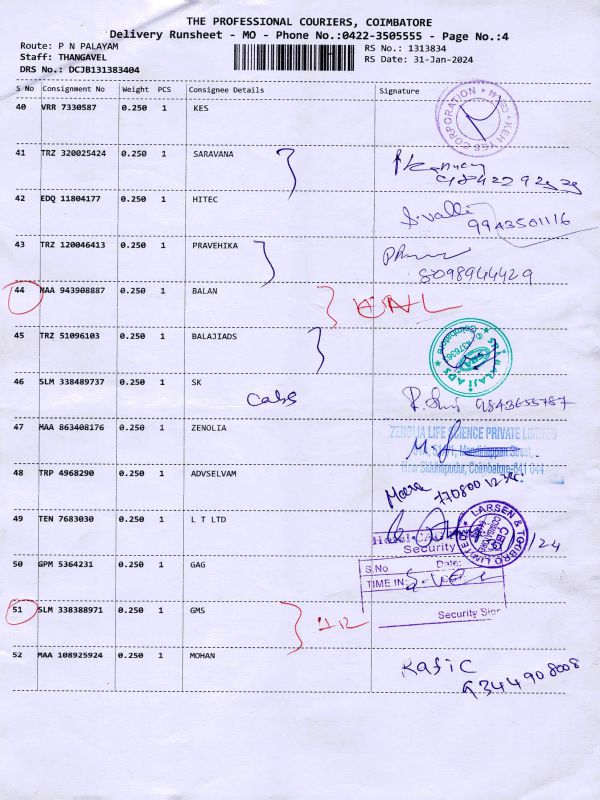 THE PROFESSIONAL COURIERS, COIMBATORE
Delivery Runsheet - MO - Phone No.:0422-3505555 - Page No.:4
Route: P N PALAYAM
RS No.: 1313834
Staff: THANGAVEL
RS Date: 31-Jan-2024
DRS No.: DCJB131383404
S No Consignment No Weight PCS Consignee Details Signature
40 VRR 7330587 0.250 1 KES
KEH YES CORPORATION
41 TRZ 320025424 0.250 1 SARAVANA
42 EDQ 11804177 0.250 1 HITEC
S.valli
9943501116
43 TRZ 120046413 0.250 1 PRAVEHIKA
8098944429
44 MAA 943908887 0.250 1 BALAN
45 TRZ 51096103 0.250 1 BALAJIADS
SRI BALAJI ADS
Coimbatore
46 SLM 338489737 0.250 1 SK
Cabs
9843655787
47 MAA 863408176 0.250 1 ZENOLIA
ZENOLIA LIFE SCIENCE PRIVATE LIMITED
New Siddhapudur, Coimbatore-641 044
48 TRP 4968290 0.250 1 ADVSELVAM
49 TEN 7683030 0.250 1 L T LTD
LARSEN & TOUBRO LIMITED
Security
50 GPM 5364231 0.250 1 GAG
S.No Date:
TIME IN:
51 SLM 338388971 0.250 1 GMS
Security Sig
52 MAA 108925924 0.250 1 MOHAN
Rafic
9344908008